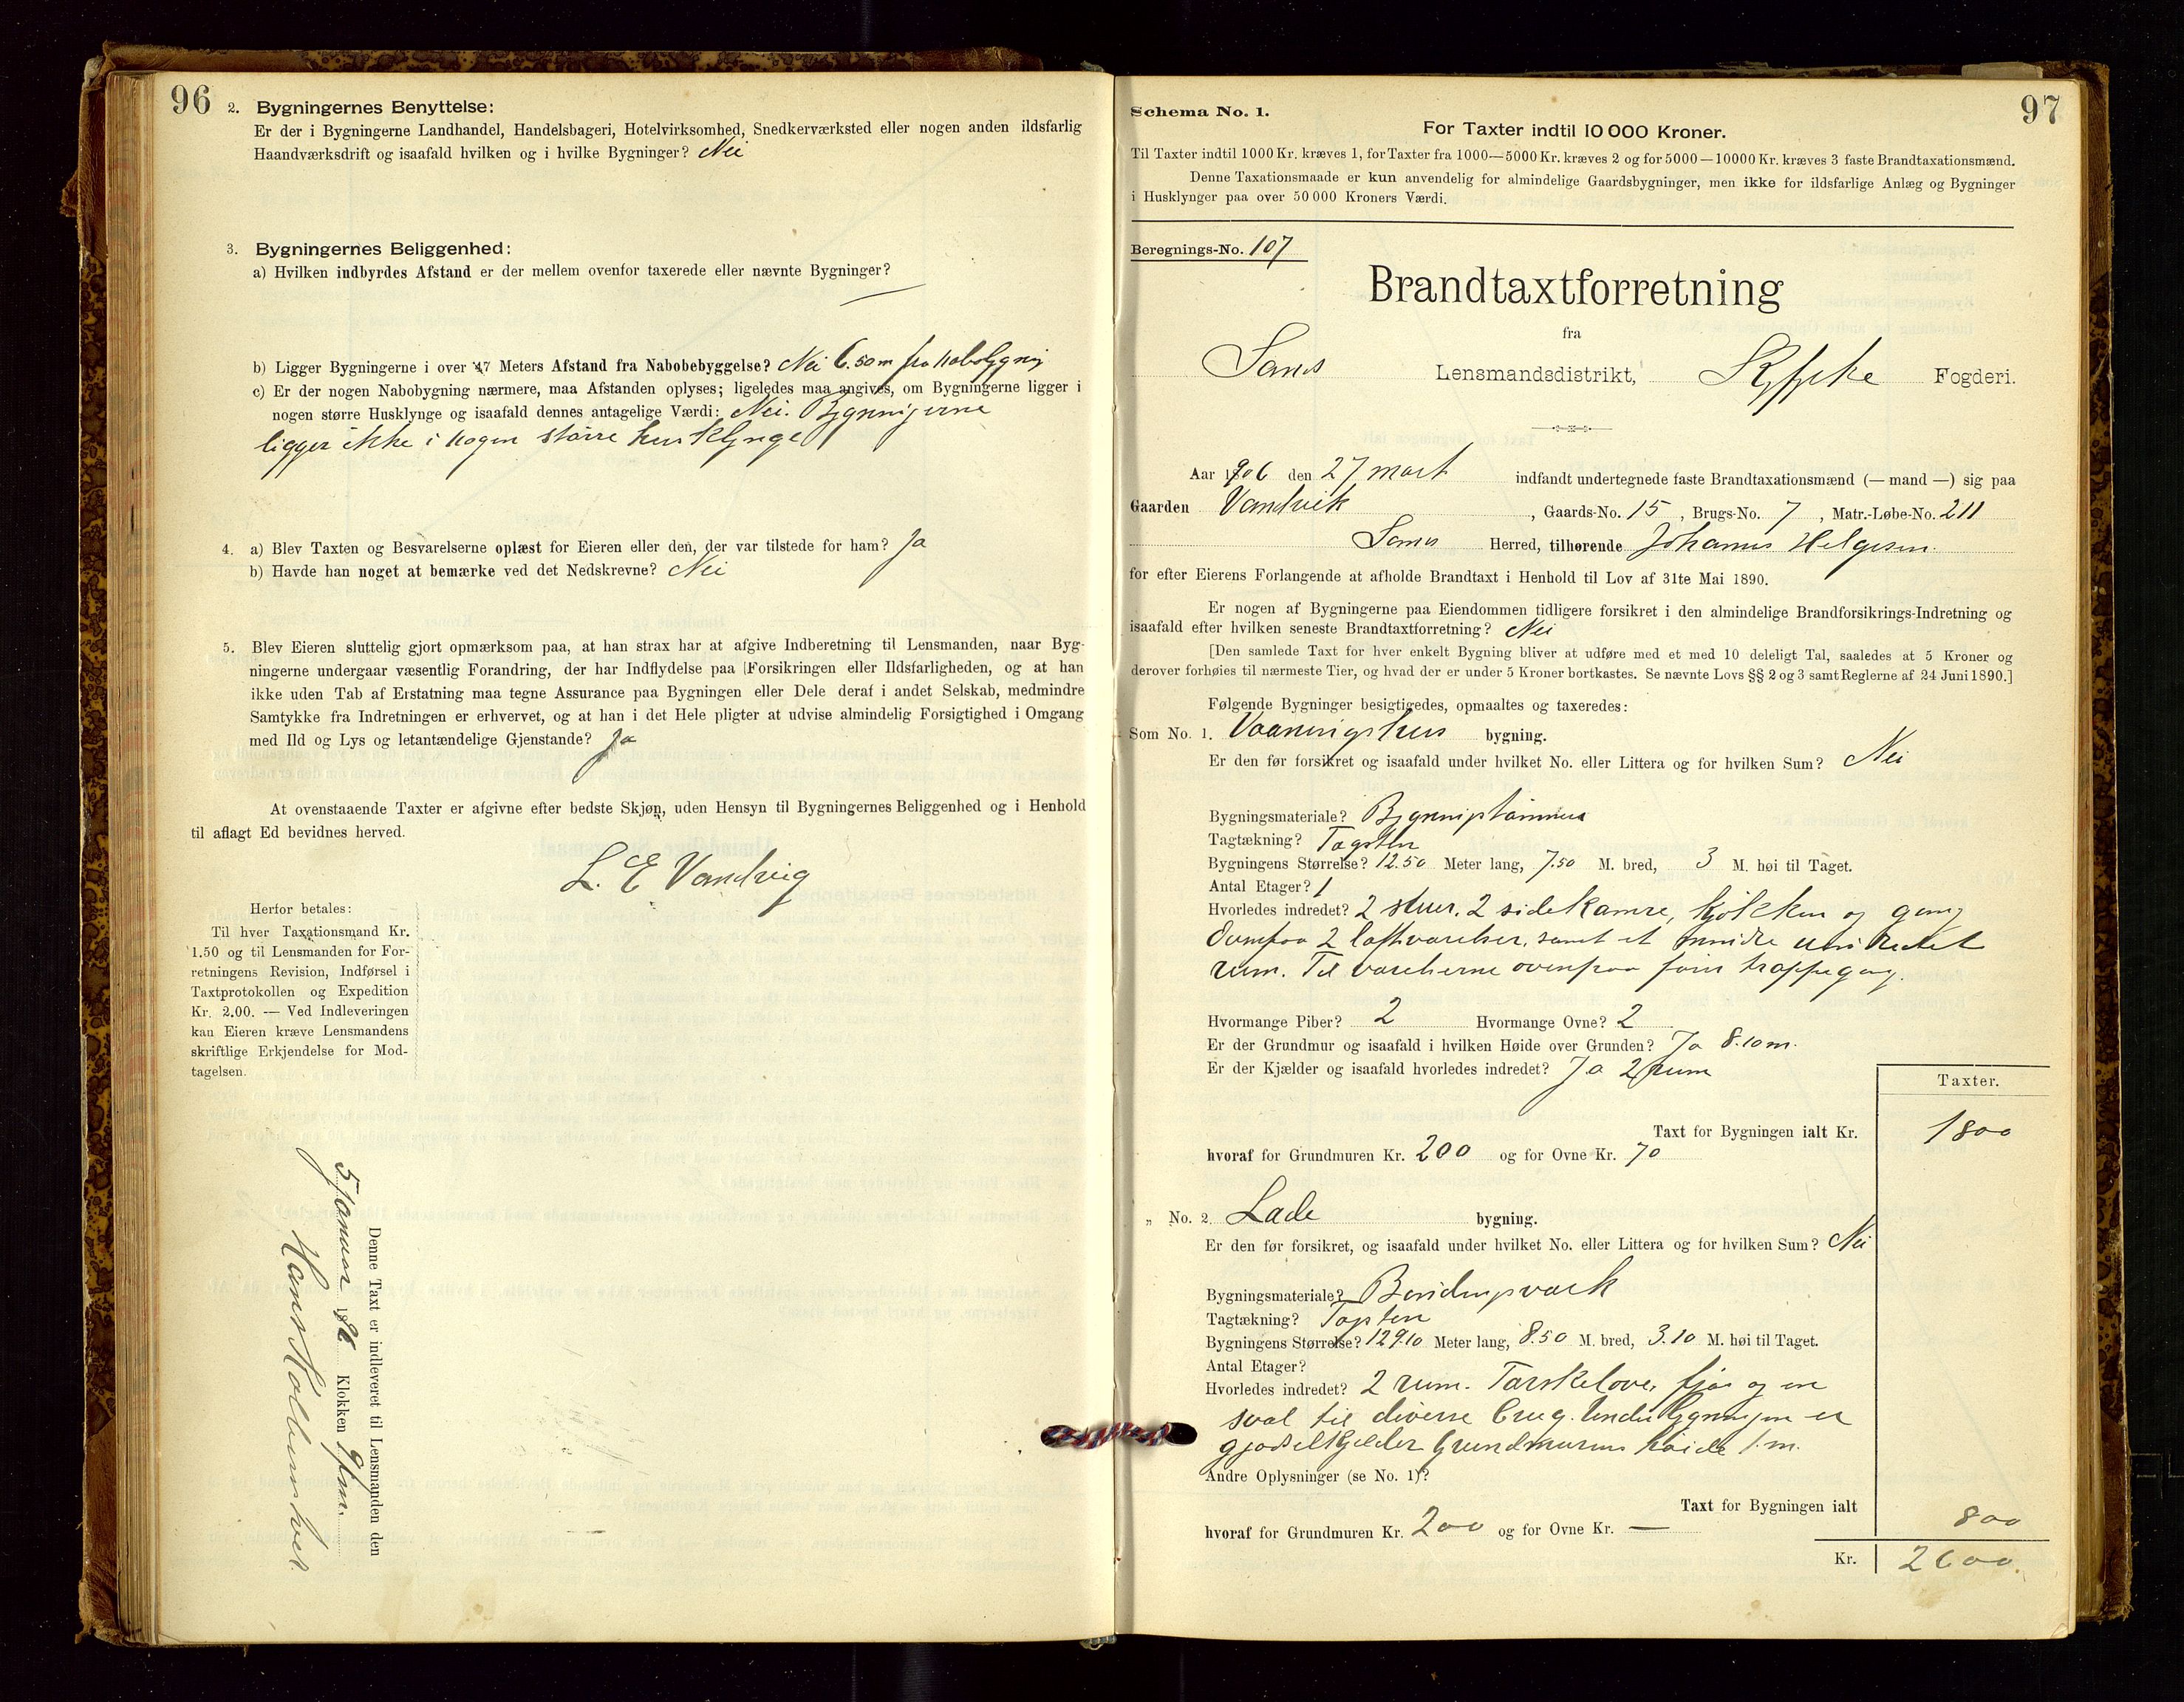 96
2. Bygningernes Benyttelse:
Er der i Bygningerne Landhandel, Handelsbageri, Hotelvirksomhed, Snedkerværksted eller nogen anden ildsfarlig
Haandværksdrift og isaafald hvilken og i hvilke Bygninger? Nei
3. Bygningernes Beliggenhed:
a) Hvilken indbyrdes Afstand er der mellem ovenfor taxerede eller nævnte Bygninger?
b) Ligger Bygningerne i over 47 Meters Afstand fra Nabobebyggelse? Nei 6.50 m fra nabobygning
c) Er der nogen Nabobygning nærmere, maa Afstanden oplyses; ligeledes maa angives, om Bygningerne ligger i
nogen større Husklynge og isaafald dennes antagelige Værdi: Nei. Bygningerne
ligger ikke i nogen större husklynge
4. a) Blev Taxten og Besvarelserne oplæst for Eieren eller den, der var tilstede for ham? Ja
b) Havde han noget at bemærke ved det Nedskrevne? Nei
5. Blev Eieren sluttelig gjort opmærksom paa, at han strax har at afgive Indberetning til Lensmanden, naar Byg-
ningerne undergaar væsentlig Forandring, der har Indflydelse paa Forsikringen eller Ildsfarligheden, og at han
ikke uden Tab af Erstatning maa tegne Assurance paa Bygningen eller Dele deraf i andet Selskab, medmindre
Samtykke fra Indretningen er erhvervet, og at han i det Hele pligter at udvise almindelig Forsigtighed i Omgang
med Ild og Lys og letantændelige Gjenstande? Ja
At ovenstaaende Taxter er afgivne efter bedste Skjøn, uden Hensyn til Bygningernes Beliggenhed og i Henhold
til aflagt Ed bevidnes herved.
L. E Vandvig
Herfor betales:
Til hver Taxationsmand Kr.
1.50 og til Lensmanden for For-
retningens Revision, Indførsel i
Taxtprotokollen og Expedition
Kr. 2.00. — Ved Indleveringen
kan Eieren kræve Lensmandens
skriftlige Erkjendelse for Mod-
tagelsen.
Denne Taxt er indleveret til Lensmanden den
5 Januar Klokken 9 fm.
Hans
97
Schema No. 1.
For Taxter indtil 10 000 Kroner.
Til Taxter indtil 1000 Kr. kræves 1, for Taxter fra 1000—5000 Kr. kræves 2 og for 5000—10000 Kr. kræves 3 faste Brandtaxationsmænd.
Denne Taxationsmaade er kun anvendelig for almindelige Gaardsbygninger, men ikke for ildsfarlige Anlæg og Bygninger
i Husklynger paa over 50 000 Kroners Værdi.
Beregnings-No. 107
Brandtaxtforretning
fra
Lensmandsdistrikt, Ryfylke Fogderi.
Aar 1906 den 27 mart indfandt undertegnede faste Brandtaxationsmænd (— mand —) sig paa
Gaarden Vandvik, Gaards-No. 15, Brugs-No. 7, Matr.-Løbe-No. 211
Herred, tilhørende Johannes Helgesen.
for efter Eierens Forlangende at afholde Brandtaxt i Henhold til Lov af 31te Mai 1890.
Er nogen af Bygningerne paa Eiendommen tidligere forsikret i den almindelige Brandforsikrings-Indretning og
isaafald efter hvilken seneste Brandtaxtforretning? Nei
[Den samlede Taxt for hver enkelt Bygning bliver at udføre med et med 10 deleligt Tal, saaledes at 5 Kroner og
derover forhøies til nærmeste Tier, og hvad der er under 5 Kroner bortkastes. Se nævnte Lovs §§ 2 og 3 samt Reglerne af 24 Juni 1890.]
Følgende Bygninger besigtigedes, opmaaltes og taxeredes:
Som No. 1. Vaaningshus bygning.
Er den før forsikret og isaafald under hvilket No. eller Littera og for hvilken Sum? Nei
Bygningsmateriale? Bygningstömmer
Tagtækning? Tagsten
Bygningens Størrelse? 12.50 Meter lang, 7.50 M. bred, 3 M. høi til Taget.
Antal Etager? 1
Hvorledes indredet? 2 stuer, 2 sidekamre, kjökken og gang
Ovenpaa 2 loftsværelser, samt et mindre uindredet
rum. Til værelserne ovenpaa förer trappegang.
Hvormange Piber? 2 Hvormange Ovne? 2
Er der Grundmur og isaafald i hvilken Høide over Grunden? Ja 8.10 m.
Er der Kjælder og isaafald hvorledes indredet? Ja 2 rum
Taxter.
Taxt for Bygningen ialt Kr. 1800
hvoraf for Grundmuren Kr. 200 og for Ovne Kr. 70
„ No. 2. Lade bygning.
Er den før forsikret, og isaafald under hvilket No. eller Littera og for hvilken Sum? Nei
Bygningsmateriale? Bindingsværk
Tagtækning? Tagsten
Bygningens Størrelse? Meter lang, 8.50 M. bred, 3.10 M. høi til Taget.
Antal Etager?
Hvorledes indredet? 2 rum. Tærskelove, fjös og en
sval til diverse brug. Under bygningen er
gjödselkjelder Grundmurens höide 1 m.
Andre Oplysninger (se No. 1)?
Taxt for Bygningen ialt 800
hvoraf for Grundmuren Kr. 200 og for Ovne Kr. —
Kr. 2600.